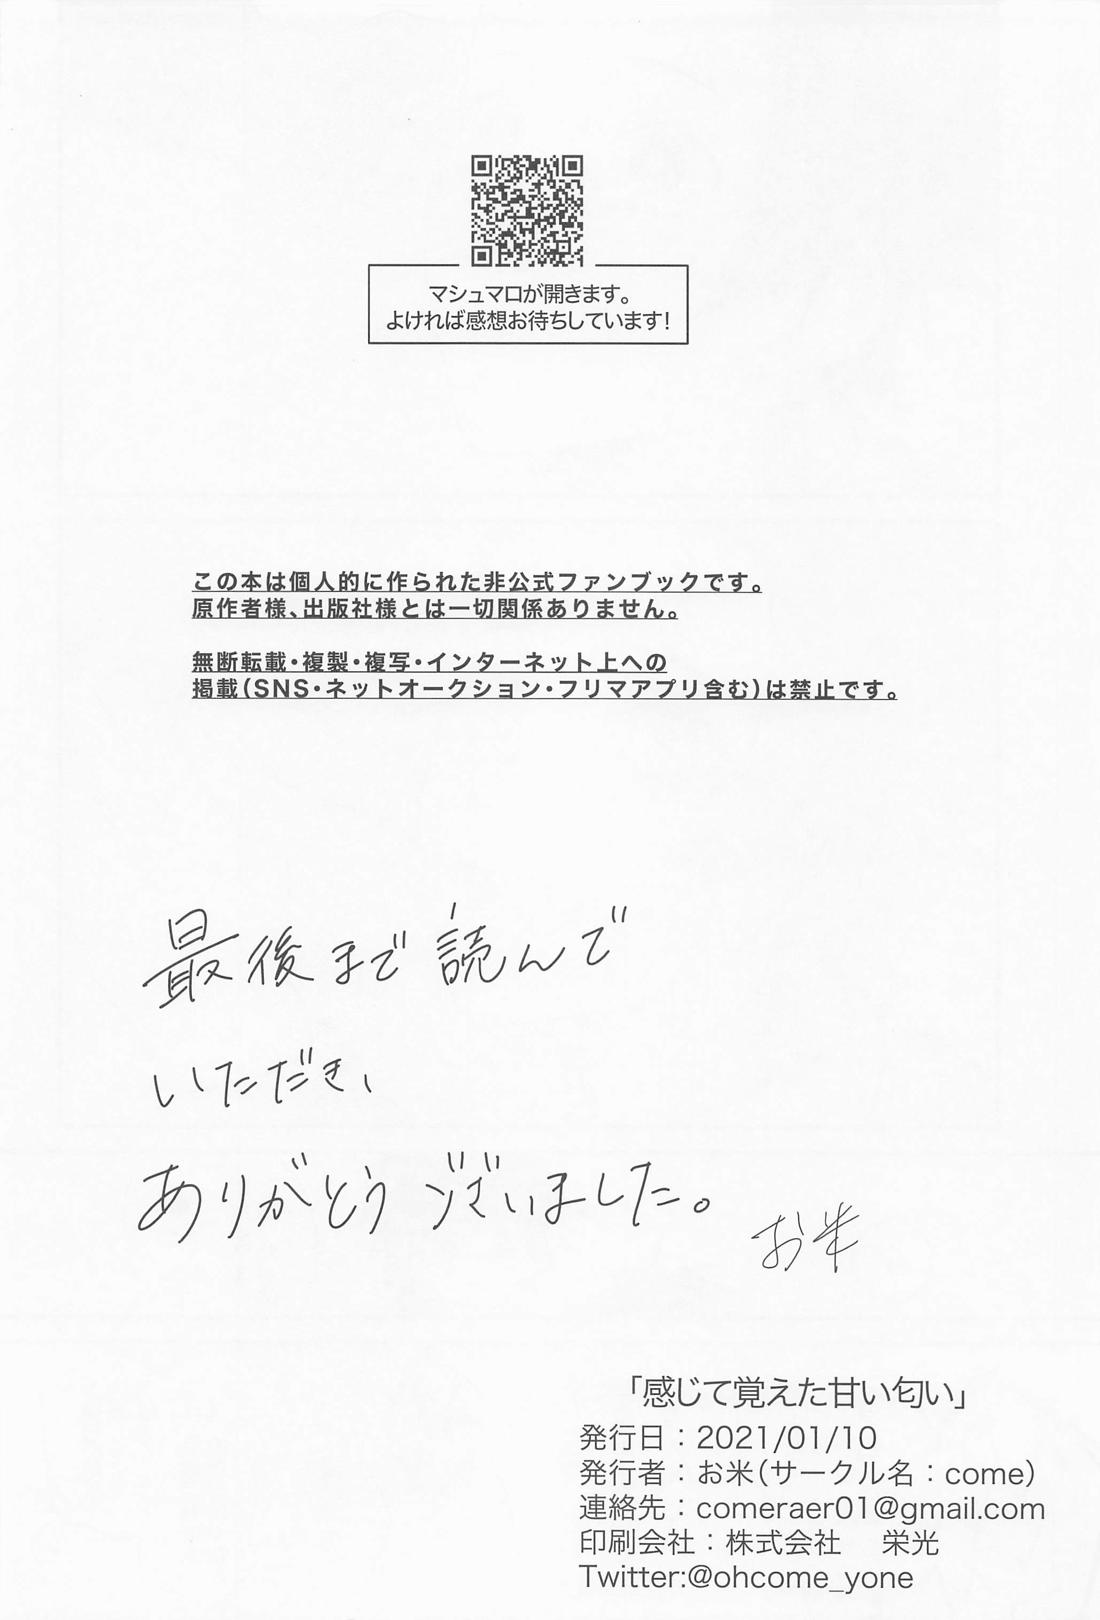 マシュマロが開きます。
よければ感想お待ちしています!
この本は個人的に作られた非公式ファンブックです。
原作者様、出版社様とは一切関係ありません。
無断転載・複製・複写・インターネット上への
掲載(SNS・ネットオークション・フリマアプリ含む)は禁止です。
最後まで読んで
いただき、
ありがとうございました。
お米
「感じて覚えた甘い匂い」
発行日:2021/01/10
発行者:お米(サークル名:come)
連絡先:comeraer01@gmail.com
印刷会社:株式会社 栄光
Twitter:@ohcome_yone